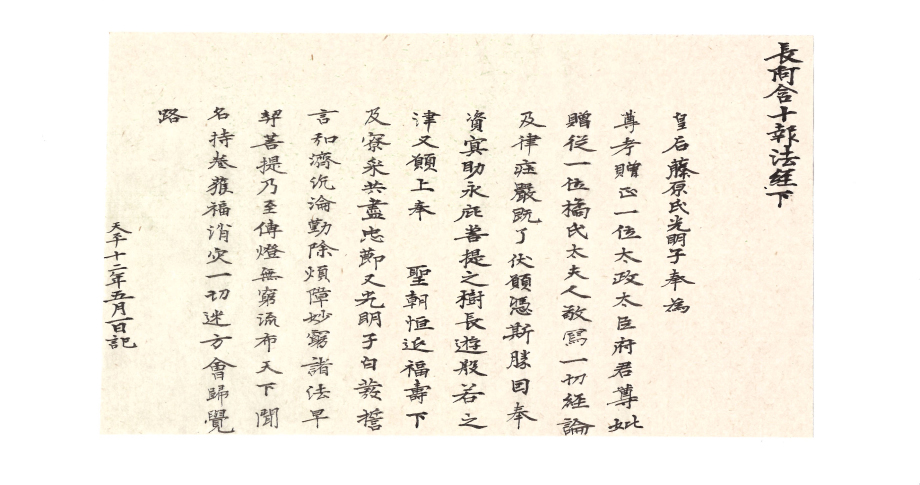 長阿含十報法経下
皇后藤原氏光明子奉為
尊考贈正一位太政太臣府君尊妣
贈従一位橘氏太夫人敬寫一切経論
及律庄嚴既了伏願憑斯勝因奉
資冥助永庇菩提之樹長遊般若之
津又願上奉　聖朝恒延福壽下
及寮采共盡忠莭又光明子自發誓
言和濟沉淪勤除煩障妙窮諸法早
契菩提乃至傳燈無窮流布天下聞
名持卷獲福消灾一切迷方會歸覺
路
天平十二年五月一日記